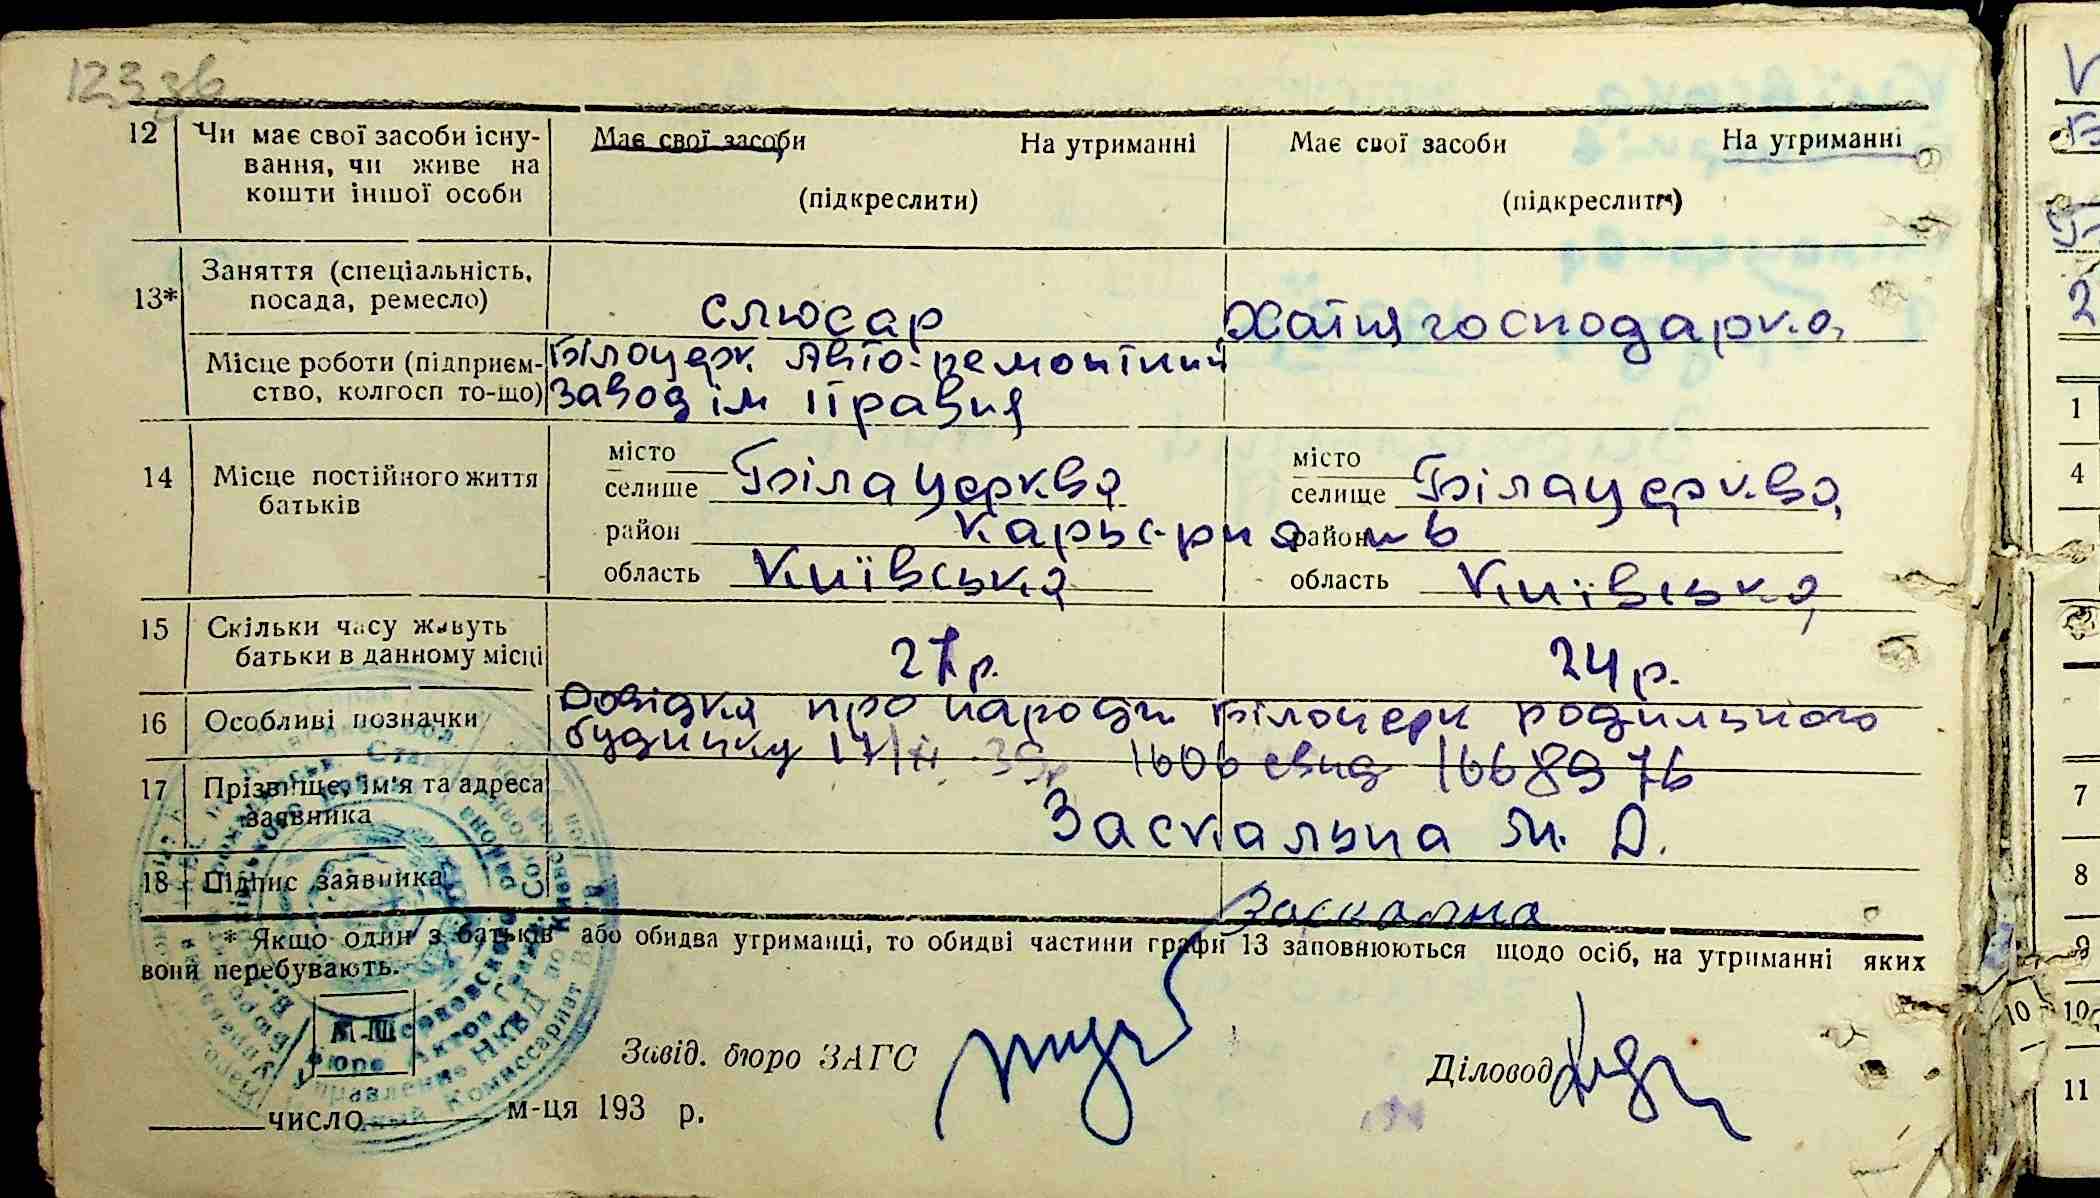 123 зв
12 Чи має свої засоби існу- Має свої засоби На утриманні Має свої засоби На утриманні
вання, чи живе на
кошти іншої особи (підкреслити) (підкреслити)
Заняття (спеціальність,
13* посада, ремесло) слюсар Хатня господарка
Місце роботи (підприєм- Білоцерк Авто-ремонтний
ство, колгосп то-що) завод ім Правди
14 Місце постійного життя місто Біла церква місто Біла церква
батьків селище селище
район Карьерна № 6 район
область Київська область Київська
15 Скільки часу живуть
батьки в данному місці 27 р. 24 р.
16 Особливі позначки Довідка про народж Білоцерк родильного
будинку 17/II 39р 1606 свид 1668976
17 Прізвище, ім'я та адреса
заявника Заскальна М. Д.
18 Підпис заявника Заскальна
* Якщо один з батьків або обидва утриманці, то обидві частини графи 13 заповнюються щодо осіб, на утриманні яких
вони перебувають.
М. П.
Завід. бюро ЗАГС Діловод
число м-ця 193 р.
1
4
7
8
9
10 10
11